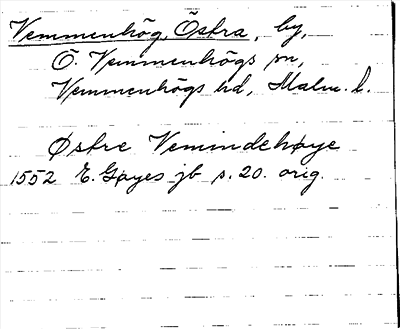 Vemmenhög, Östra, by,
Ö. Vemmenhögs sn,
Vemmenhögs hd, Malm. l.
Østre Vemindehøye
1552 E. Gøyes jb s. 20. orig.